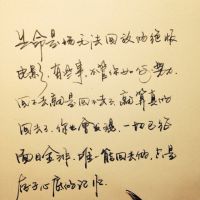 生命是场无法回放的绝版
电影，有些事不管你如何努力
回不去就是回不去了，就算真的
回去了，你也会发现，一切已经
面目全非。唯一能回去的，只是
存于心底的记忆